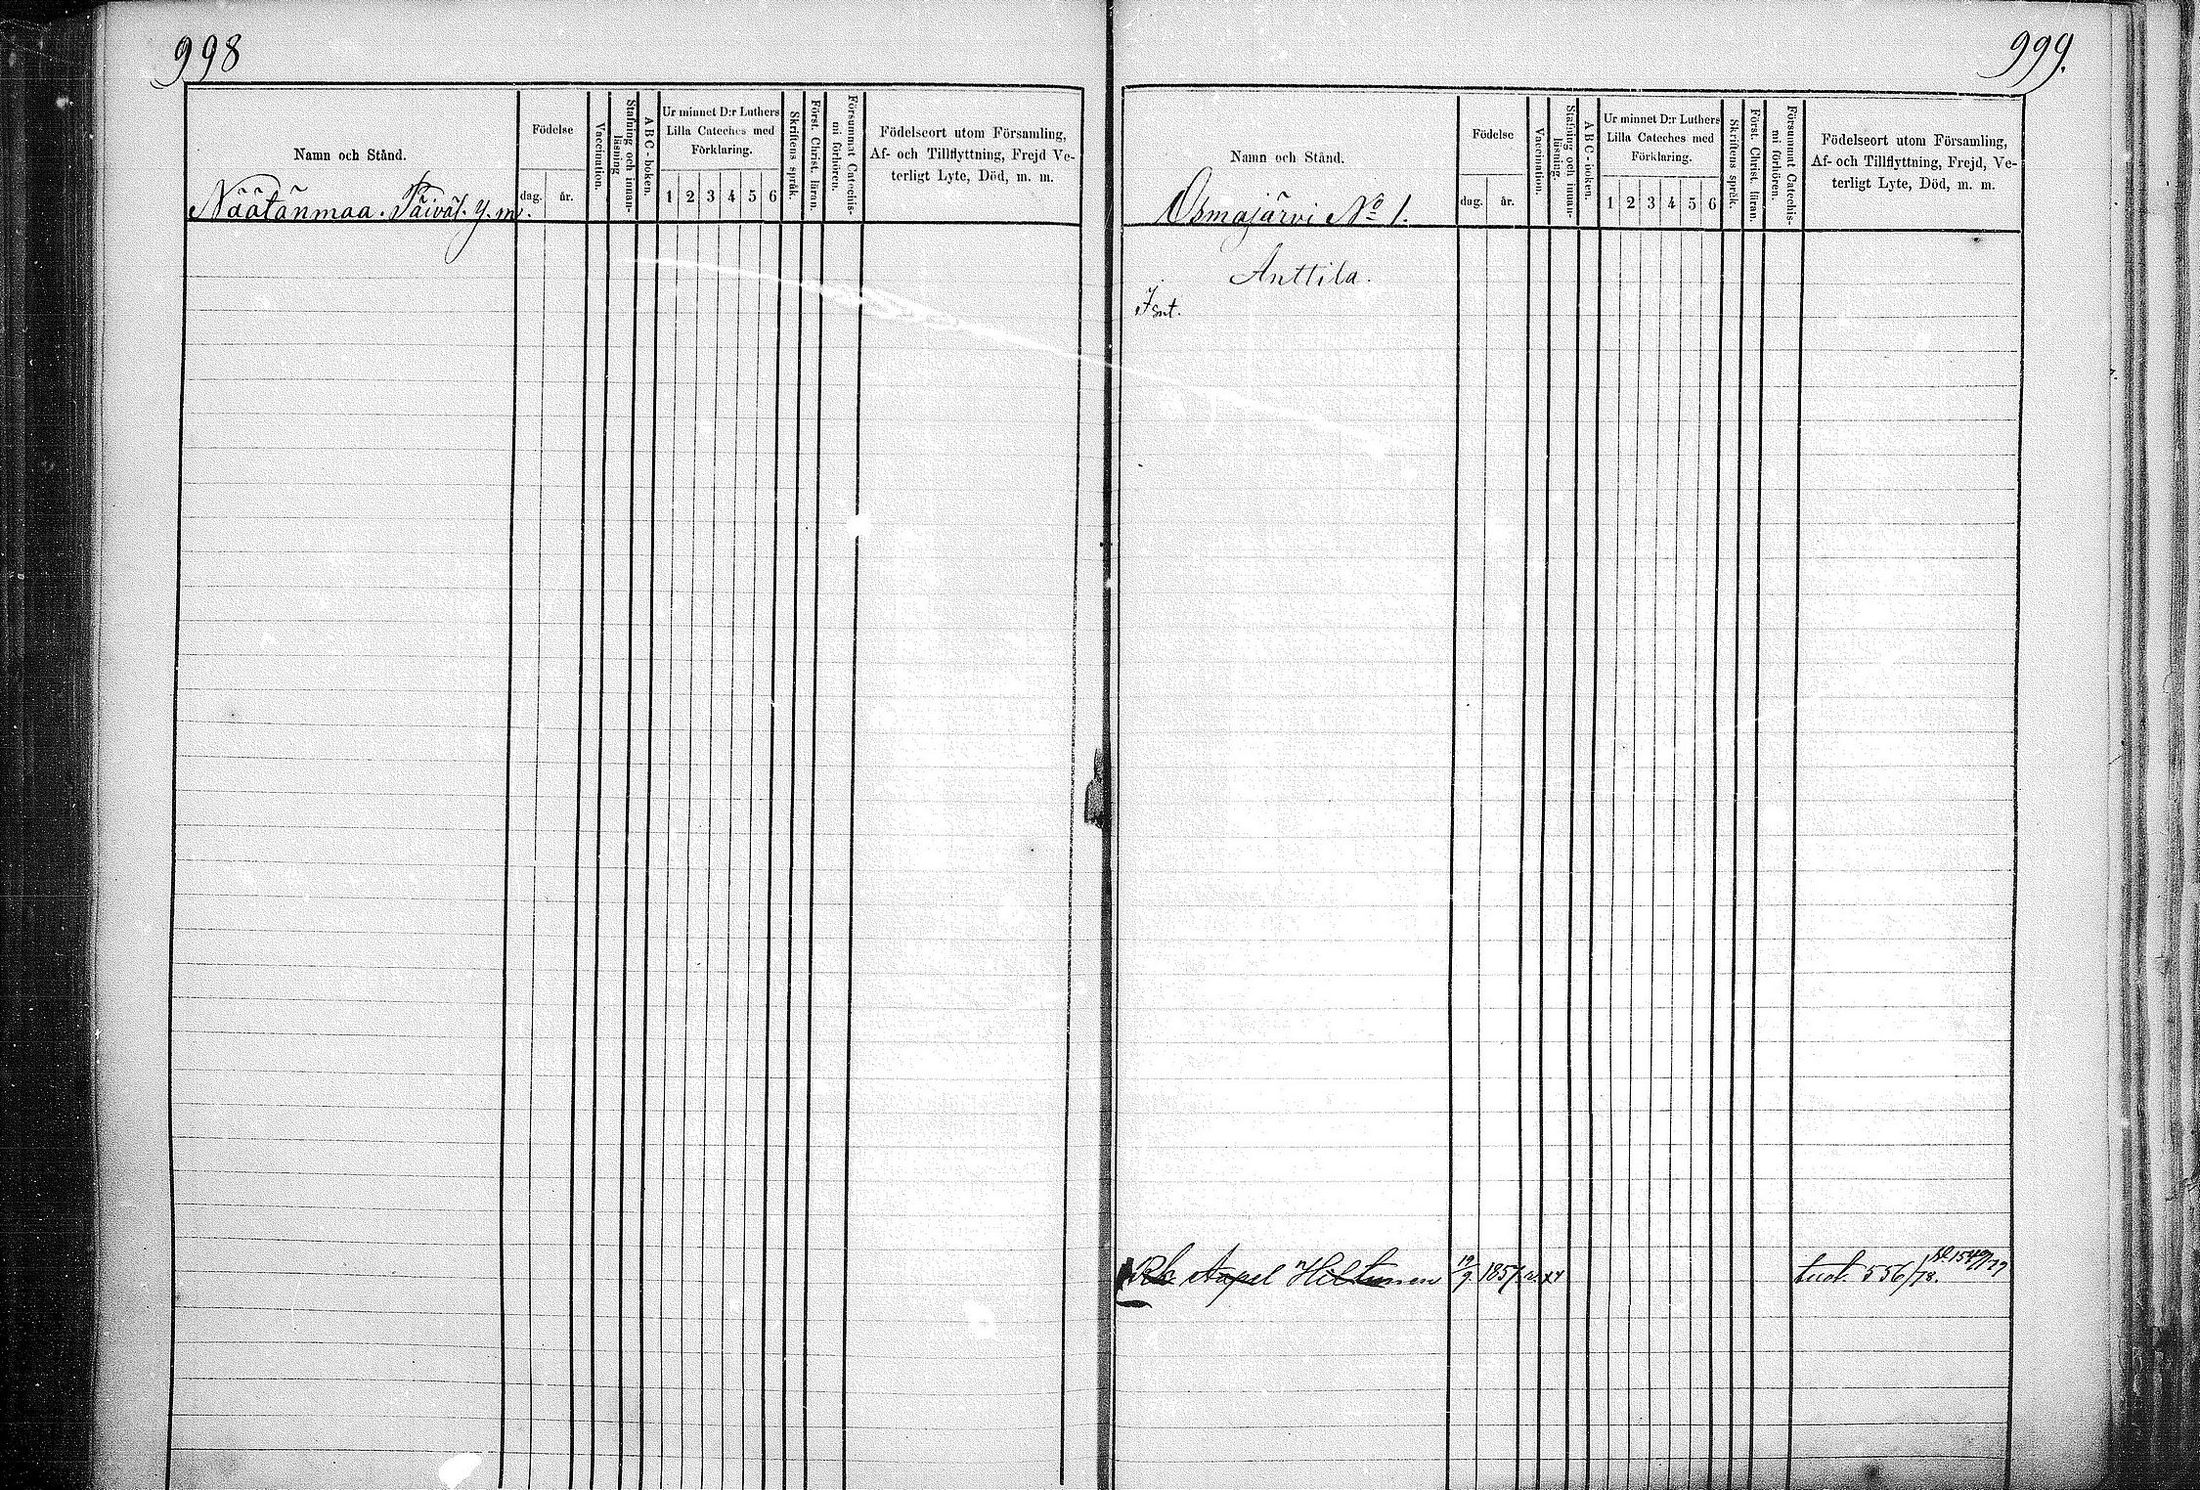 998
Namn och Stånd.
Näätänmaa. Päiväl. y. m.
Födelse
dag.
år.
Vaccination.
Stafning och innan-
läsning
ABC-boken.
Ur minnet D:r Luthers
Lilla Cateches med
Förklaring.
1 2 3 4 5 6
Skriftens språk.
Först. Christ. läran.
Försummat Catechis-
mi förhören.
Födelseort utom Församling,
Af- och Tillflyttning, Frejd Ve-
terligt Lyte, Död, m. m.
999.
Namn och Stånd.
Osmajärvi No 1.
Födelse
dag.
år.
Vaccination.
Stafning och innan-
läsning.
ABC-boken.
Ur minnet D:r Luthers
Lilla Cateches med
Förklaring.
1 2 3 4 5 6
Skriftens språk.
Först. Christ. läran.
Försummat Catechis-
mi förhören.
Födelseort utom Församling,
Af- och Tillflyttning, Frejd, Ve-
terligt Lyte, Död, m. m.
Anttila.
Isnt.
Aapel Hiltunen 19/9 1857 tuot. 556/78.